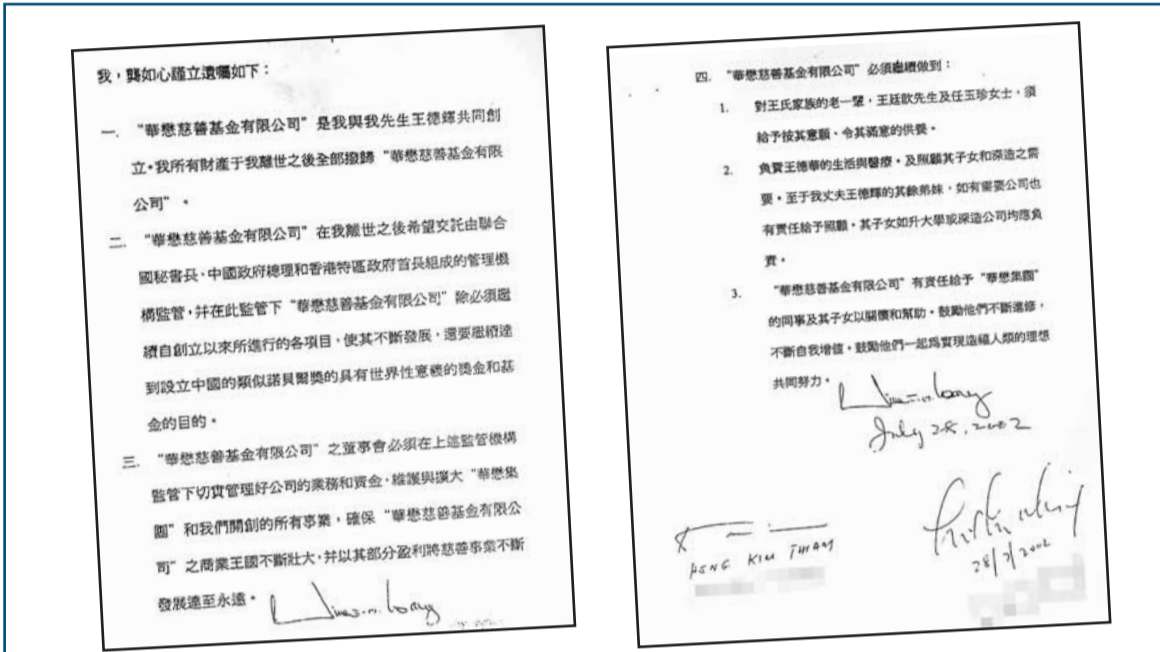 我，龔如心謹立遺囑如下：
一. “華懋慈善基金有限公司”是我與我先生王德輝共同創
立。我所有財產于我離世之後全部撥歸“華懋慈善基金有限
公司”。
二. “華懋慈善基金有限公司”在我離世之後希望交託由聯合
國秘書長、中國政府總理和香港特區政府首長組成的管理機
構監管，并在此監管下“華懋慈善基金有限公司”除必須繼
續自創立以來所進行的各項目，使其不斷發展，還要繼續達
到設立中國的類似諾貝爾獎的具有世界性意義的獎金和基
金的目的。
三. “華懋慈善基金有限公司”之董事會必須在上述監管機構
監管下切實管理好公司的業務和資金，維護與擴大“華懋集
團”和我們開創的所有事業，確保“華懋慈善基金有限公
司”之商業王國不斷壯大，并以其部分盈利將慈善事業不斷
發展達至永遠。
四. “華懋慈善基金有限公司”必須繼續做到：
1. 對王氏家族的老一輩，王廷歆先生及任玉珍女士，須
給予按其意願、令其滿意的供養。
2. 負責王德華的生活與醫療。及照顧其子女和深造之需
要。至于我丈夫王德輝的其餘弟妹，如有需要公司也
有責任給予照顧。其子女如升大學或深造公司均應負
責。
3. “華懋慈善基金有限公司”有責任給予“華懋集團”
的同事及其子女以關懷和幫助。鼓勵他們不斷進修，
不斷自我增值。鼓勵他們一起爲實現造福人類的理想
共同努力。
July 28, 2002
NG KIM THIAM
28/7/2002